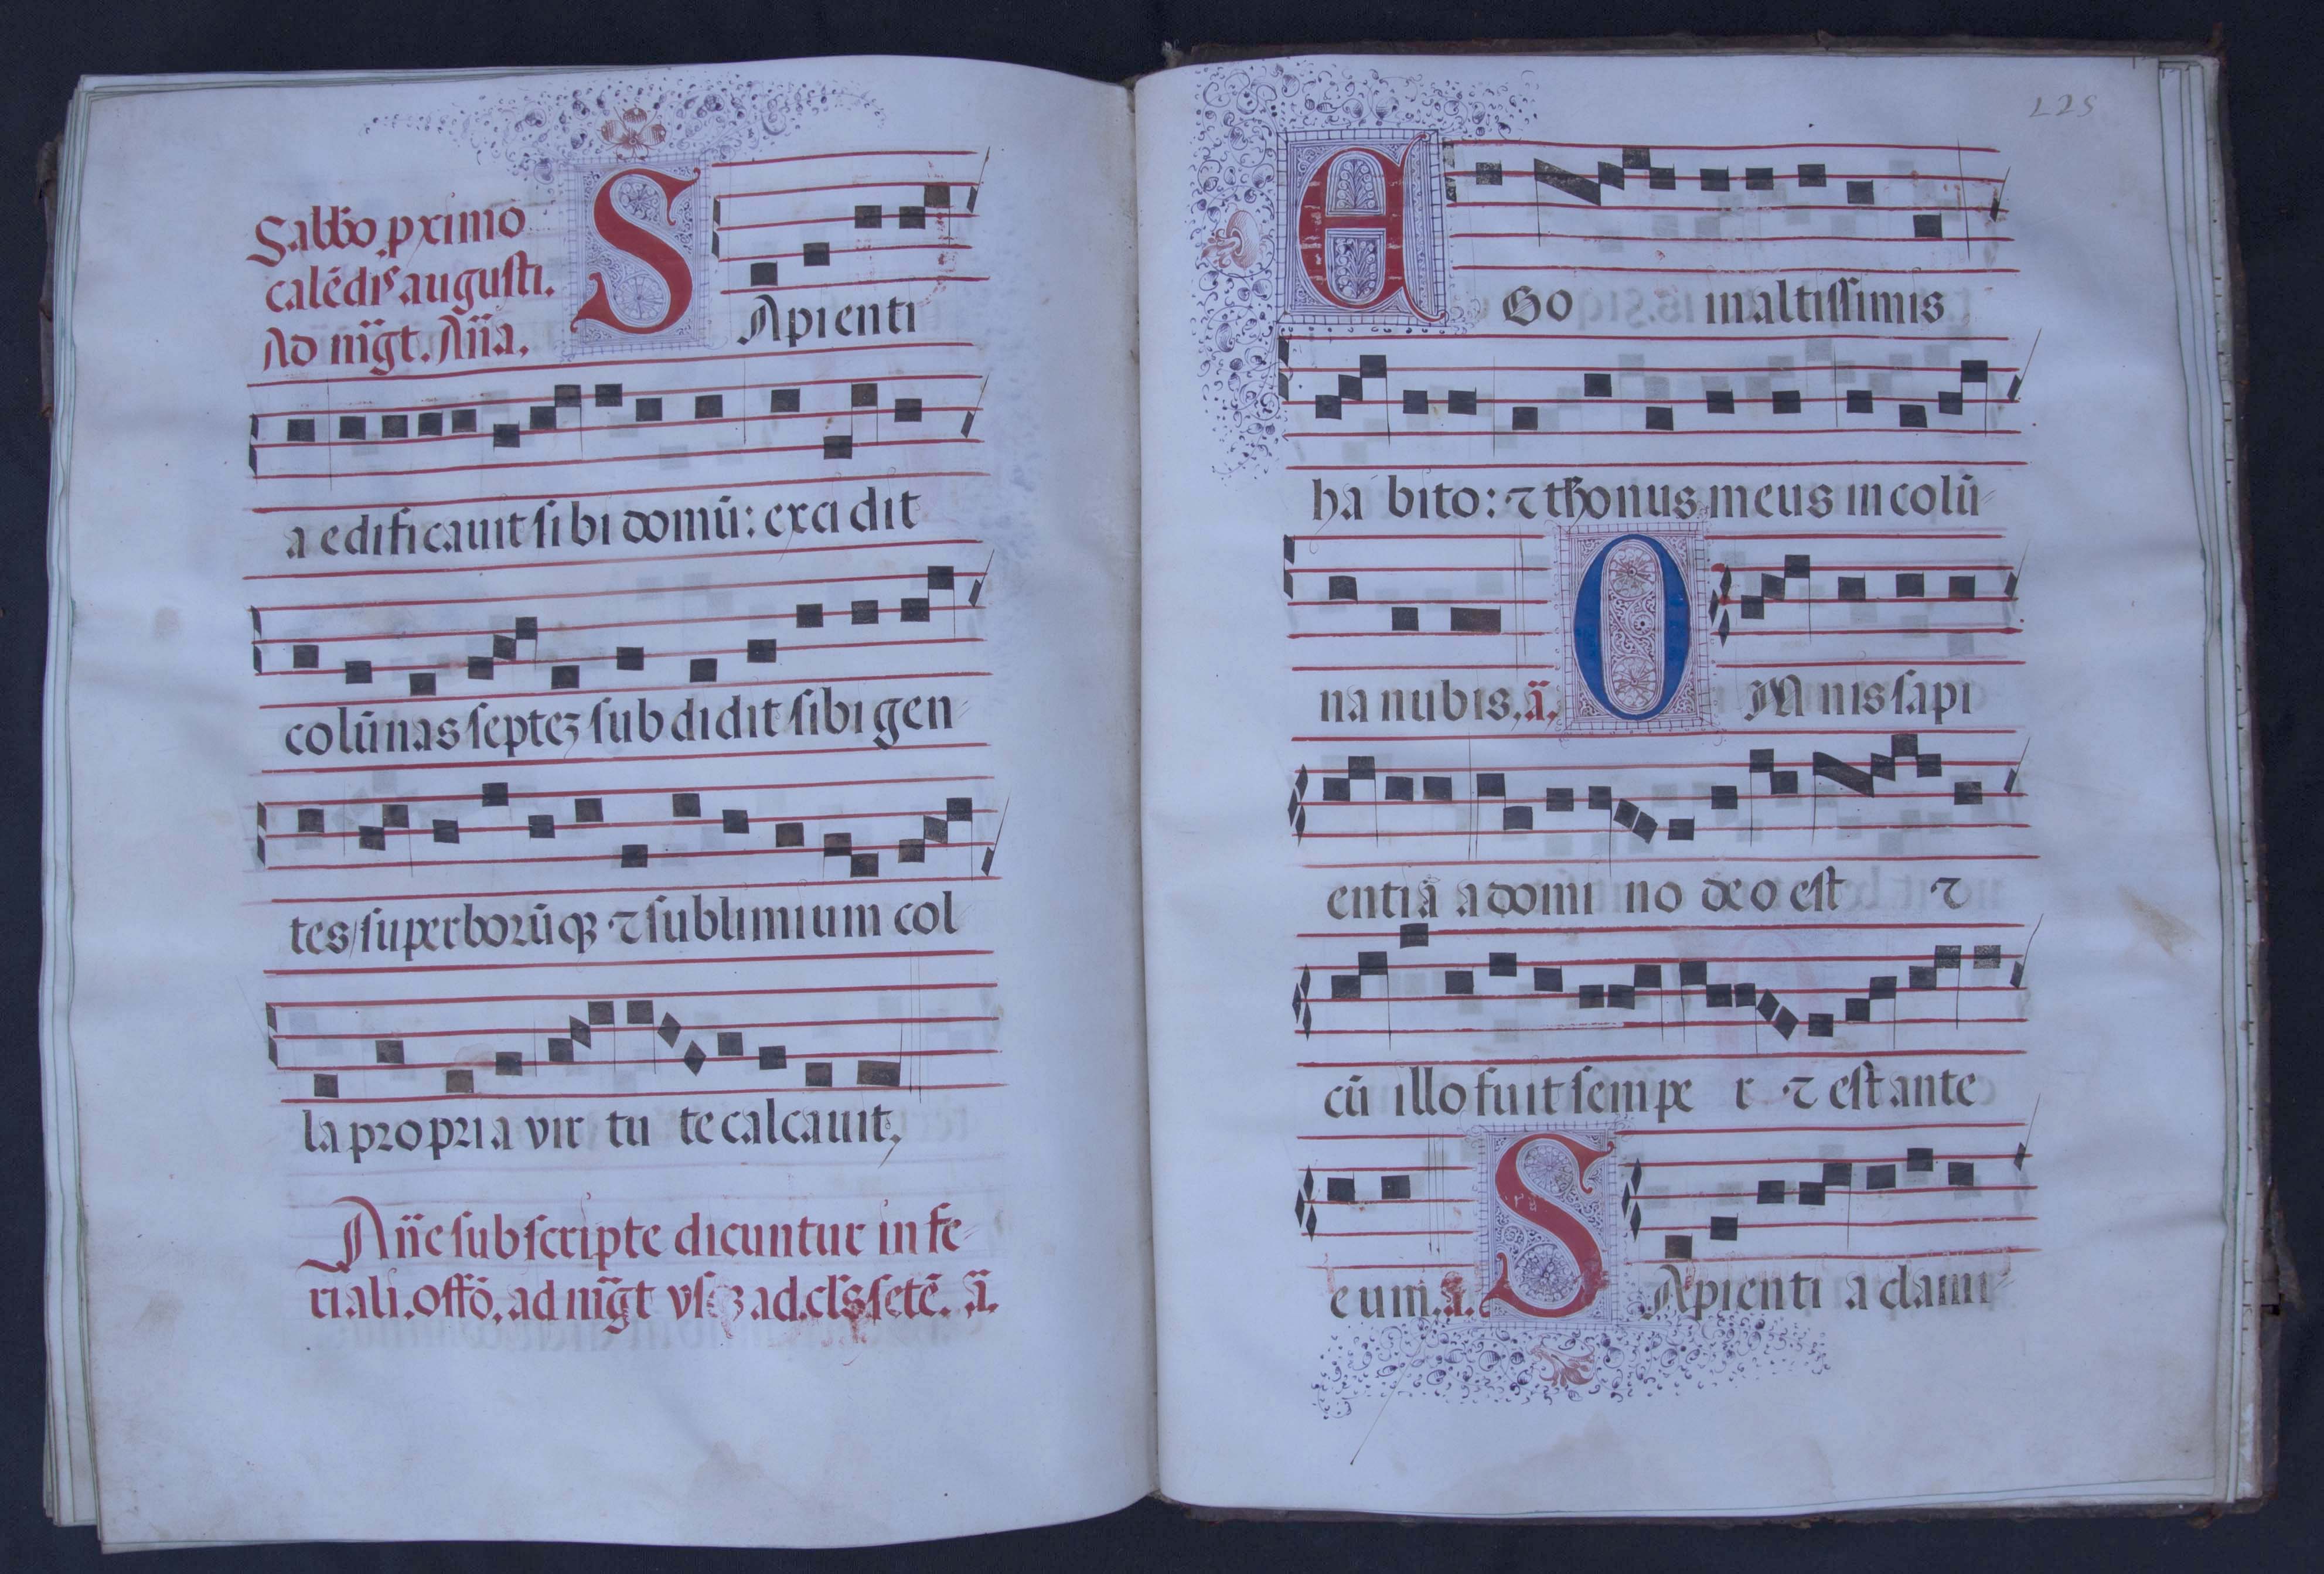 Sabb̄o p̱ximo
calēdis augusti.
Ad m̄gt. Aña.
SApienti
a edificauit sibi domū: excidit
colūnas septez subdidit sibi gen
tes/superborūq3 ⁊ sublimium col
la propria vir tu te calcauit.
Añe subscripte dicuntur in fe-
riali. offō. ad m̄gt vsq3 ad. cls setē. ā.
125
EGo in altissimis
ha bito: ⁊ thonus meus in colū-
na nubis. ā. OMnis sapi
entia a domi no deo est ⁊
cū illo fuit sempe r ⁊ est ante
eum. ā. SApienti a claui-